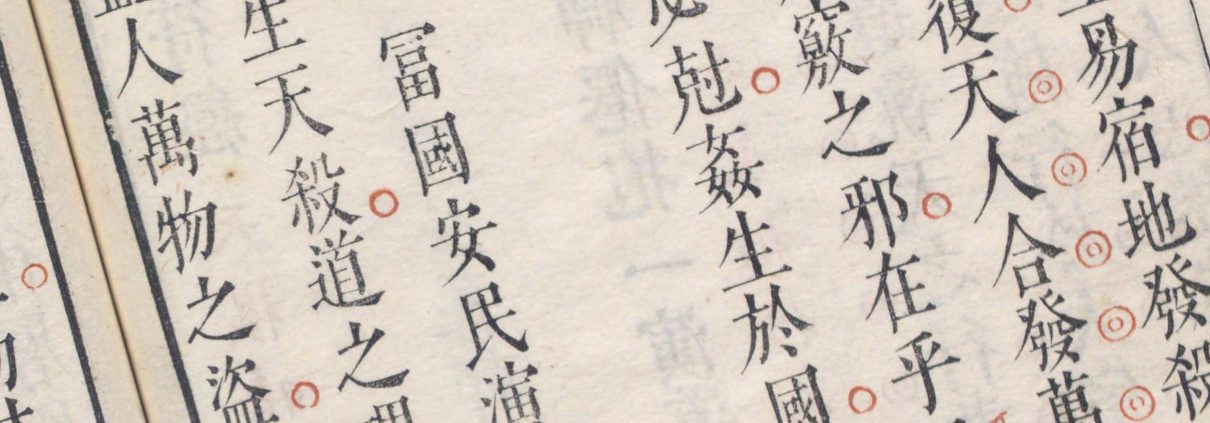 易宿地發殺
復天人合發萬
竅之邪在乎
必尅姦生於國
冨國安民演
生天殺道之
人萬物之盜